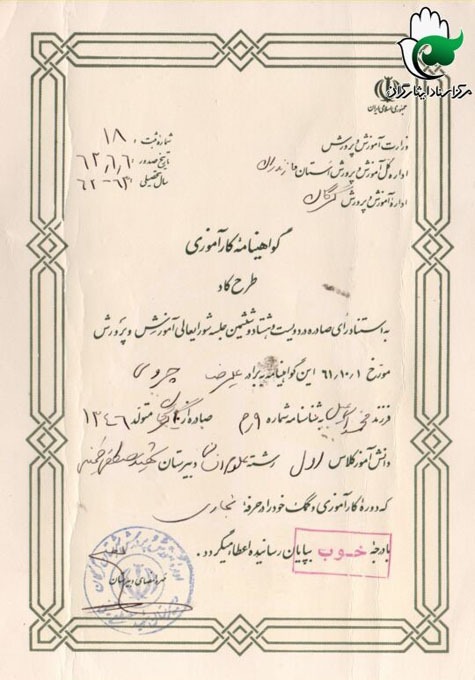 مرکز اسناد ایثارگران
جمهوری اسلامی ایران
وزارت آموزش و پرورش
اداره کل آموزش و پرورش استان مازندران
اداره آموزش و پرورش گرگان
شماره ثبت: ۱۸
تاریخ صدور: ۶۳٫۶٫۶
سال تحصیلی: ۶۳-۶۲
گواهینامه کارآموزی
طرح کاد
به استناد رای صادره در دویست و هشتاد و ششمین جلسه شورایعالی آموزش و پرورش
مورخ ۶۱٫۱۰٫۱ این گواهینامه به برادر علیرضا
فرزند محمد اسماعیل به شناسنامه شماره صادره از متولد ۱۳۴۶
دانش آموز کلاس اول رشته علوم انسانی دبیرستان شهید مصطفی خمینی
که دوره کارآموزی و کمک خود را در حرفه نجاری
با درجه خوب بپایان رسانیده اعطاء میگردد.
مهر و امضای دبیرستان